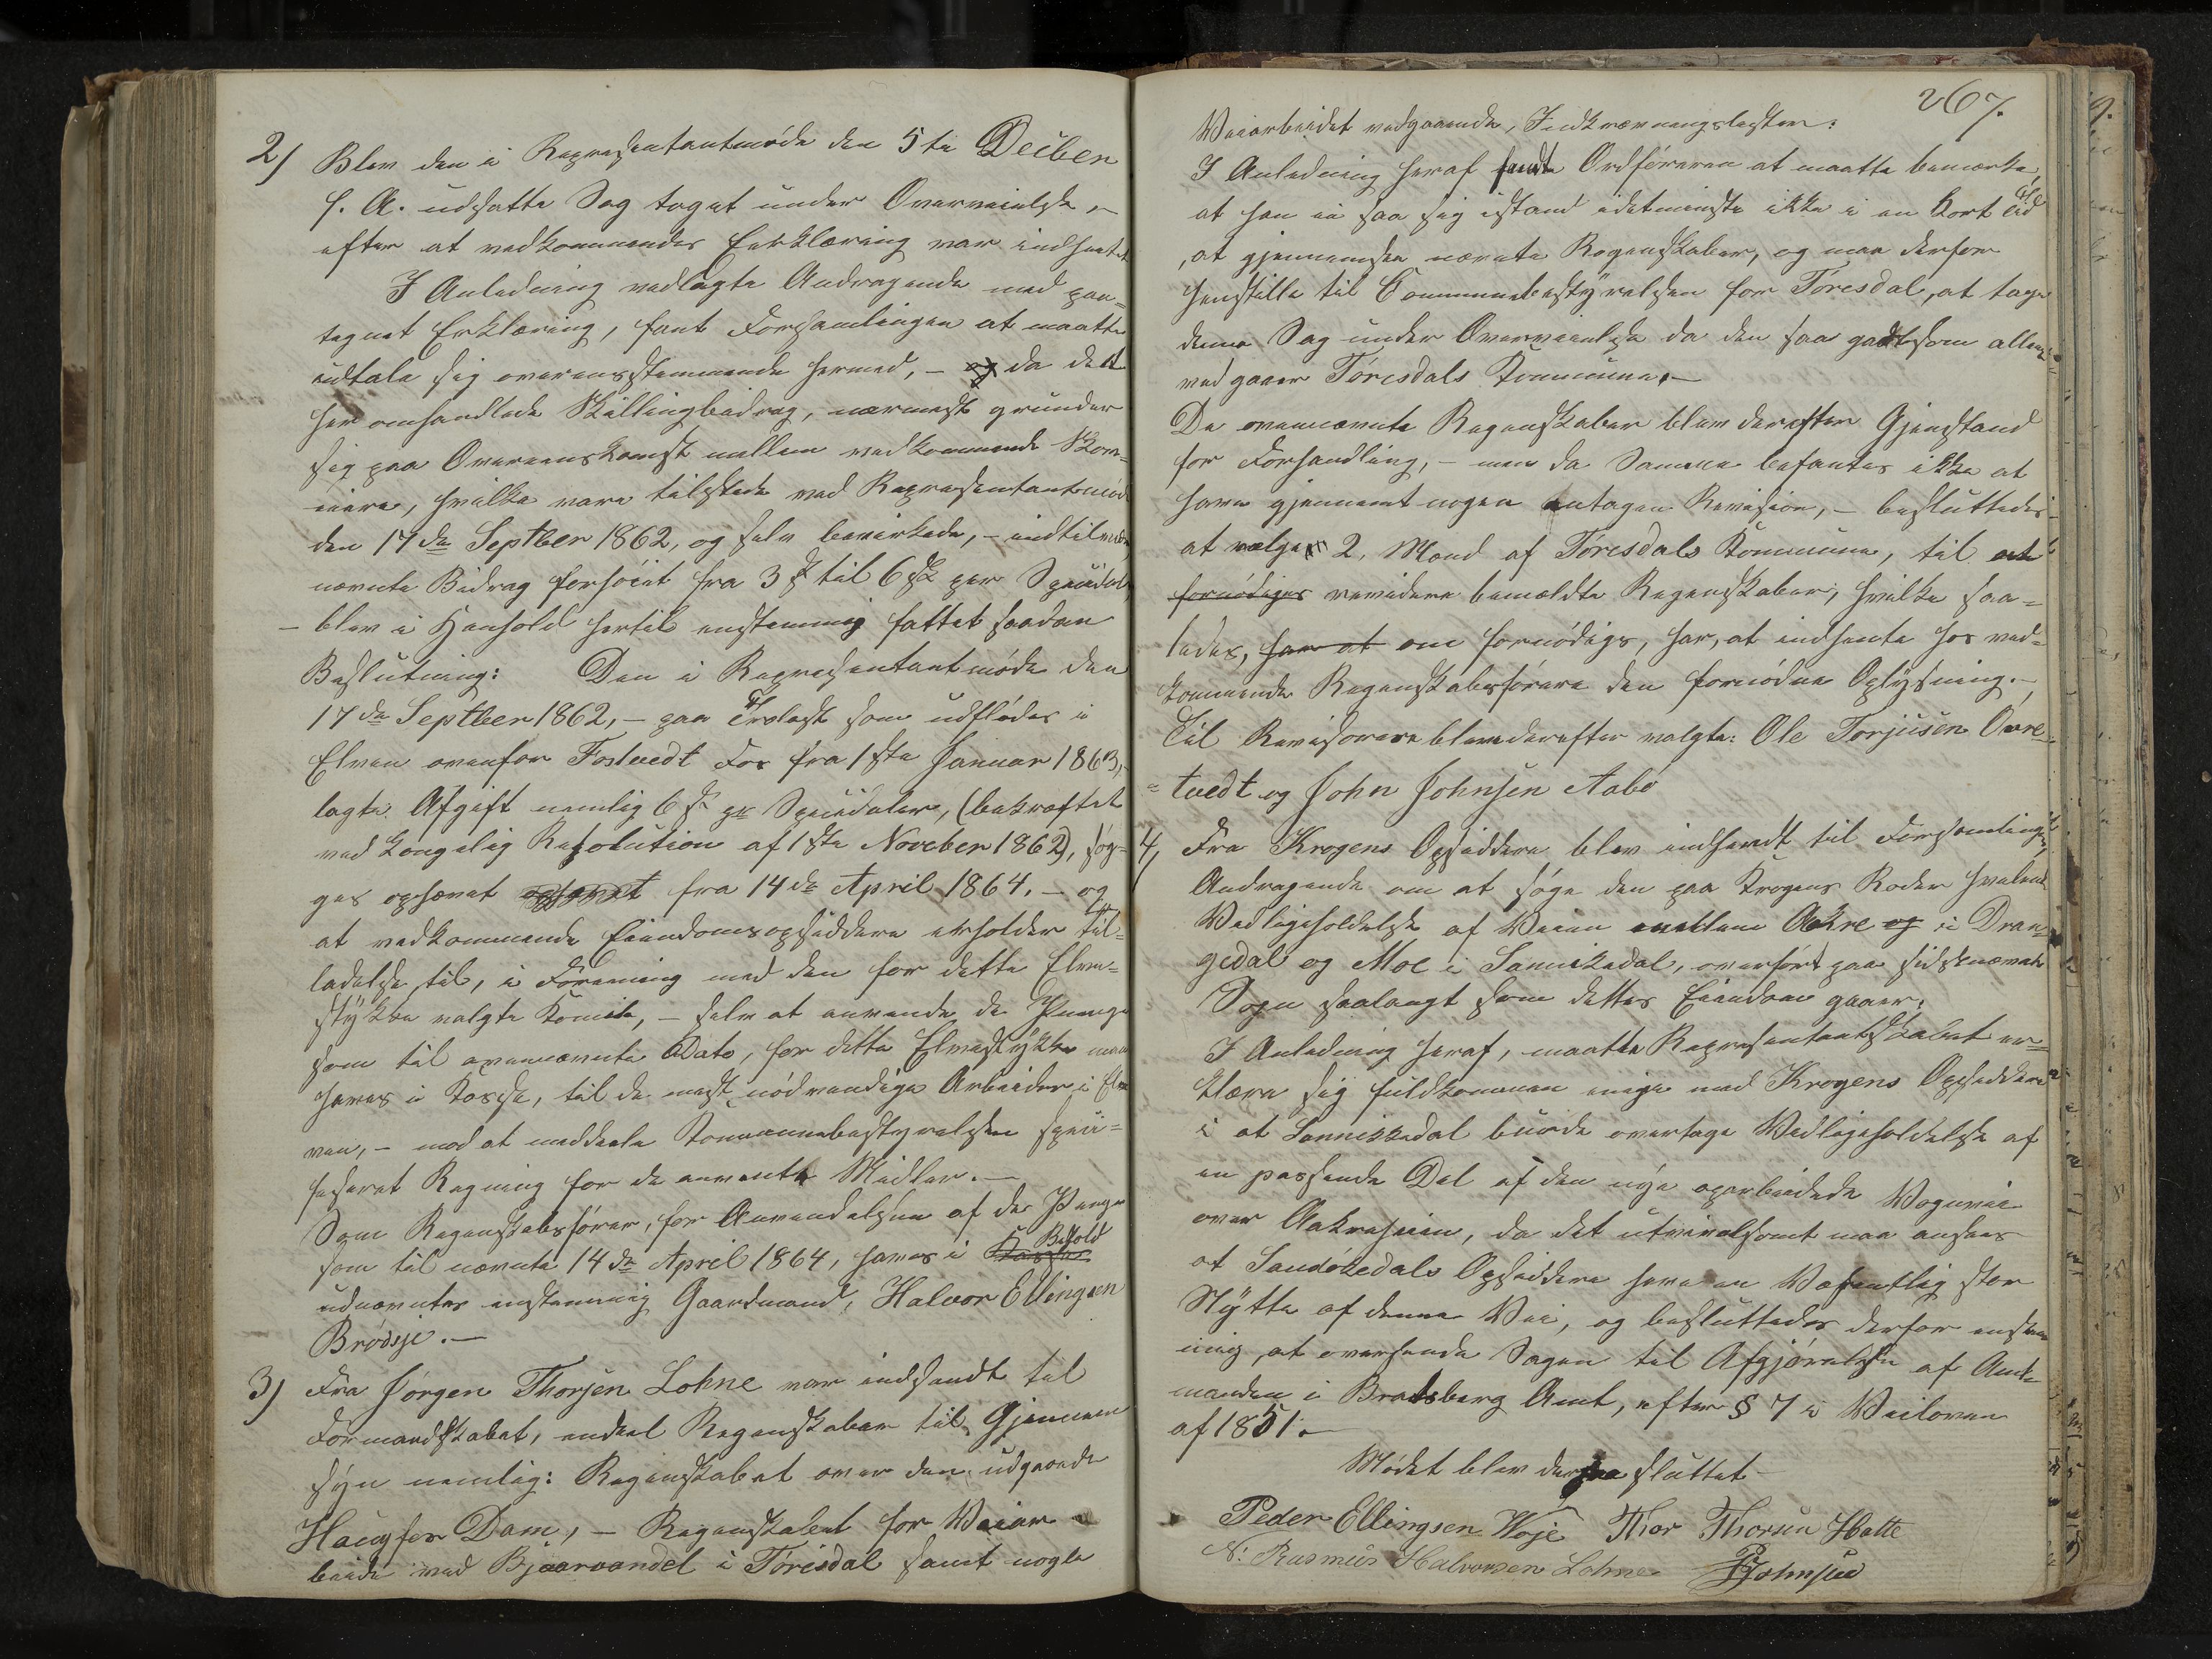 2) Blev den i Repræsentantmøde den 5te Decbber
f. A. udsatte Sag taget under Overveielse,
efter at vedkommendes Erklæring var indhentet
I Anledning vedlagte Andragende med paa=
tegnet Erklæring, fant Forsamlingen at maatte
udtale sig overensstemmende hermed, – da det
her omhandlede Skillingbidrag, nærmest grunder
sig paa Overeenskomst mellem vedkommende
hvilke vare tilstede ved Repræsentantmøde
den 17de Septber 1862, og selv bevirkede, – indtil
nævnte Bidrag forhøiet fra 3 ß til 6 ß per Speciedaler
– blev i Henhold hertil enstemmig fattet saadan
Beslutning: Den i Repræsentantmøde den
17de Septber 1862, – paa Trælast som udflødes i
Elven ovenfor Fostvedt Fos fra 1ste Januar 1863,
lagte Afgift nemlig 6 ß pr Speciedaler, (bekræftet
ved Kongelig Resolution af 1ste Novcber 1862), søg=
ges ophævet fra 14de April 1864. – og
at vedkommende Eiendomsopsiddere erholder Til=
ladelse til, i Forening med den for dette Elve=
stykke valgte Komite, – selv at anvende de Penge
som til ovennævnte Dato, for dette Elvestykke maa
haves i Kasse, til de mest nødvendige Arbeider i El
ven, – mod at meddeele Kommunebestyrelsen speci=
ficeret Regning for de anvente Midler. –
Som Regenskabsfører, for Anvendelsen af de Penge
som til nævnte 14de April 1864, haves i Behold
udnævntes enstemmig Gaardmand, Halvor Ellingsen
Brødsje. –
3) Fra Jørgen Thorsen Lohne var indsendt til
Formandskabet, endeel Regenskaber til Gjennem
syn nemlig: Regenskabet over den udgaaede
Haugfos Dam, – Regenskabet for Veiar
beide ved Bjaarvandet i Tørisdal samt nogle
267.
Veiarbeidet vedgaaende, Indkrævningslister:
I Anledning heraf fandt Ordføreren at maatte bemærke,
at han ei saa sig istand idetminste ikke i en kort Tid
, at gjennemse nævnte Regenskaber, og maa derfor
henstille til Communebestyrelsen for Tørisdal, at tage
denne Sag under Overveielse da den saa godtsom allene
vedgaaer Tørisdals Kommune. –
De ovennævnte Regenskaber blev derefter Gjenstand
for Forhandling, – men da Samme befantes ikke at
have gjennemt nogen antagen Revision, – besluttedes
at vælge 2, Mænd af Tørisdals Kommune, til at
fornødiges revidere bemældte Regenskaber, hvilke saa=
ledes, har at om fornødigs, har, at indhente hos ved=
kommende Regenskabsførere den fornødne Oplysning. –
Til Revisorere blev derefter valgte: Ole Torjusen Øvre=
=tvedt og John Johnsen Aabø
4, Fra Krogens Opsiddere blev indsendt til Forsamlingen,
Andragende om at søge den paa Krogens Roder hvilende
Vedligeholdelse af Veien mellem Aakre og i Dran=
gedal og Moe i Sannikedal, overført paa sidstnævnte
Sogn saalangt som dettes Eiendom gaaer.
I Anledning heraf, maatte Repræsentantskabet er=
klære sig fuldkommen enige med Krogens Opsiddere
i at Sannikkedal burde overtage Vedligeholdelse af
en passende Del af den nye oparbeidede Vognvei
over Aakreheien, da det utvivelsomt maa ansees
at Sandøkedals Opsiddere have en Væsentlig stor
Nytte af denne Vei, og besluttedes derfor enstem
mig, at oversende Sagen til Afgjørelse af Amt=
manden i Bratsberg Amt, efter § 7 i Veiloven
af 1851. –
Mødet blev derpaa sluttet –
Peder Ellingsen Woje Thor Thorsen Hatte
N: Rasmus Halvorsen Lohne Johnsen